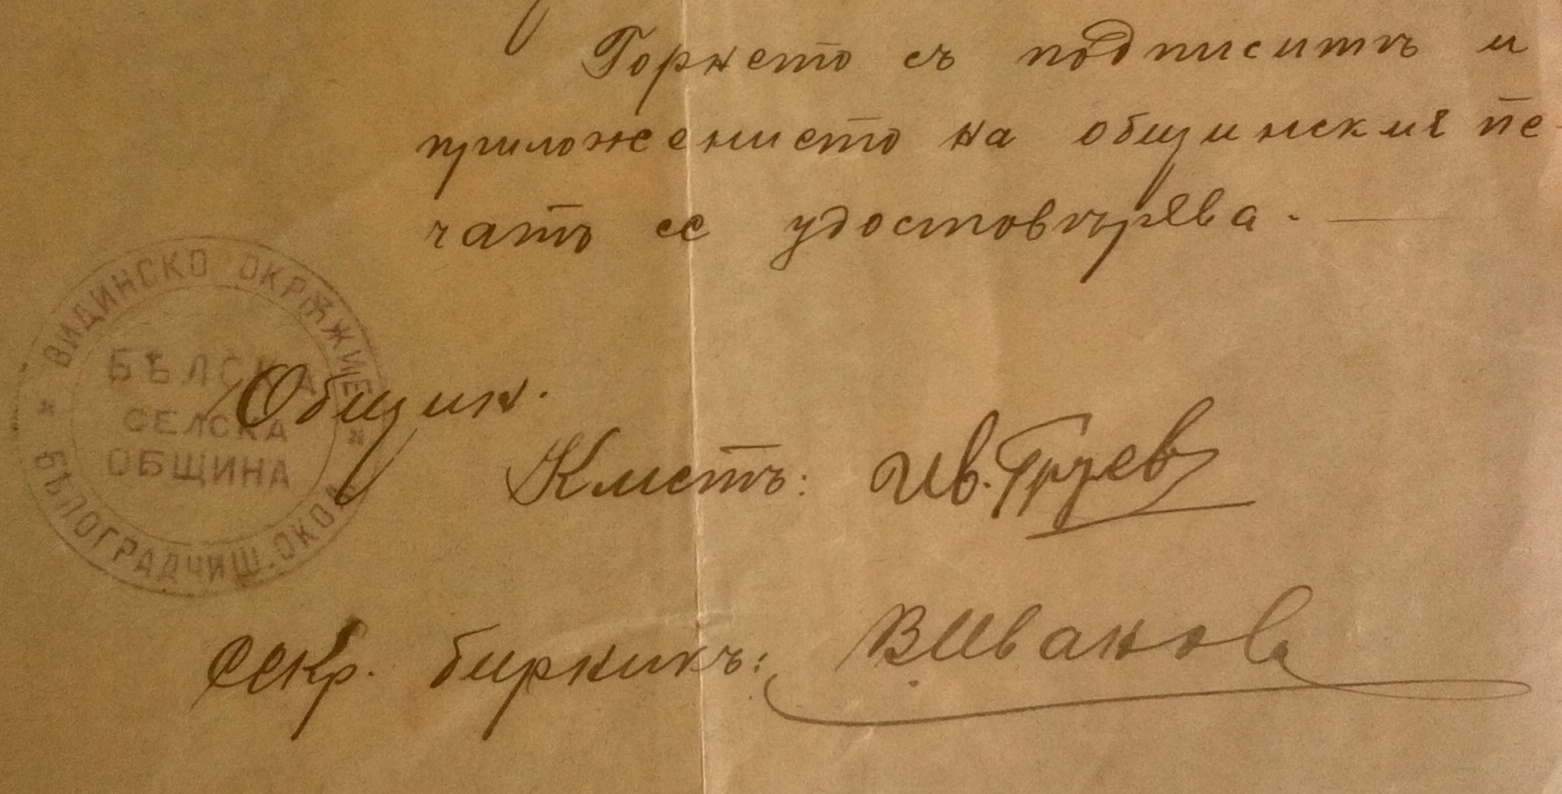 Горнето съ подписитѣ и
приложението на общинския пе
чатъ се удостовѣрява. —
ВИДИНСКО ОКРѪЖИЕ
БѢЛСКА
СЕЛСКА
ОБЩИНА
БѢЛОГРАДЧИШ. ОКОЛ.
Общин.
Кметъ: Ив. Груев
Секр. бирникъ: В. Иванов